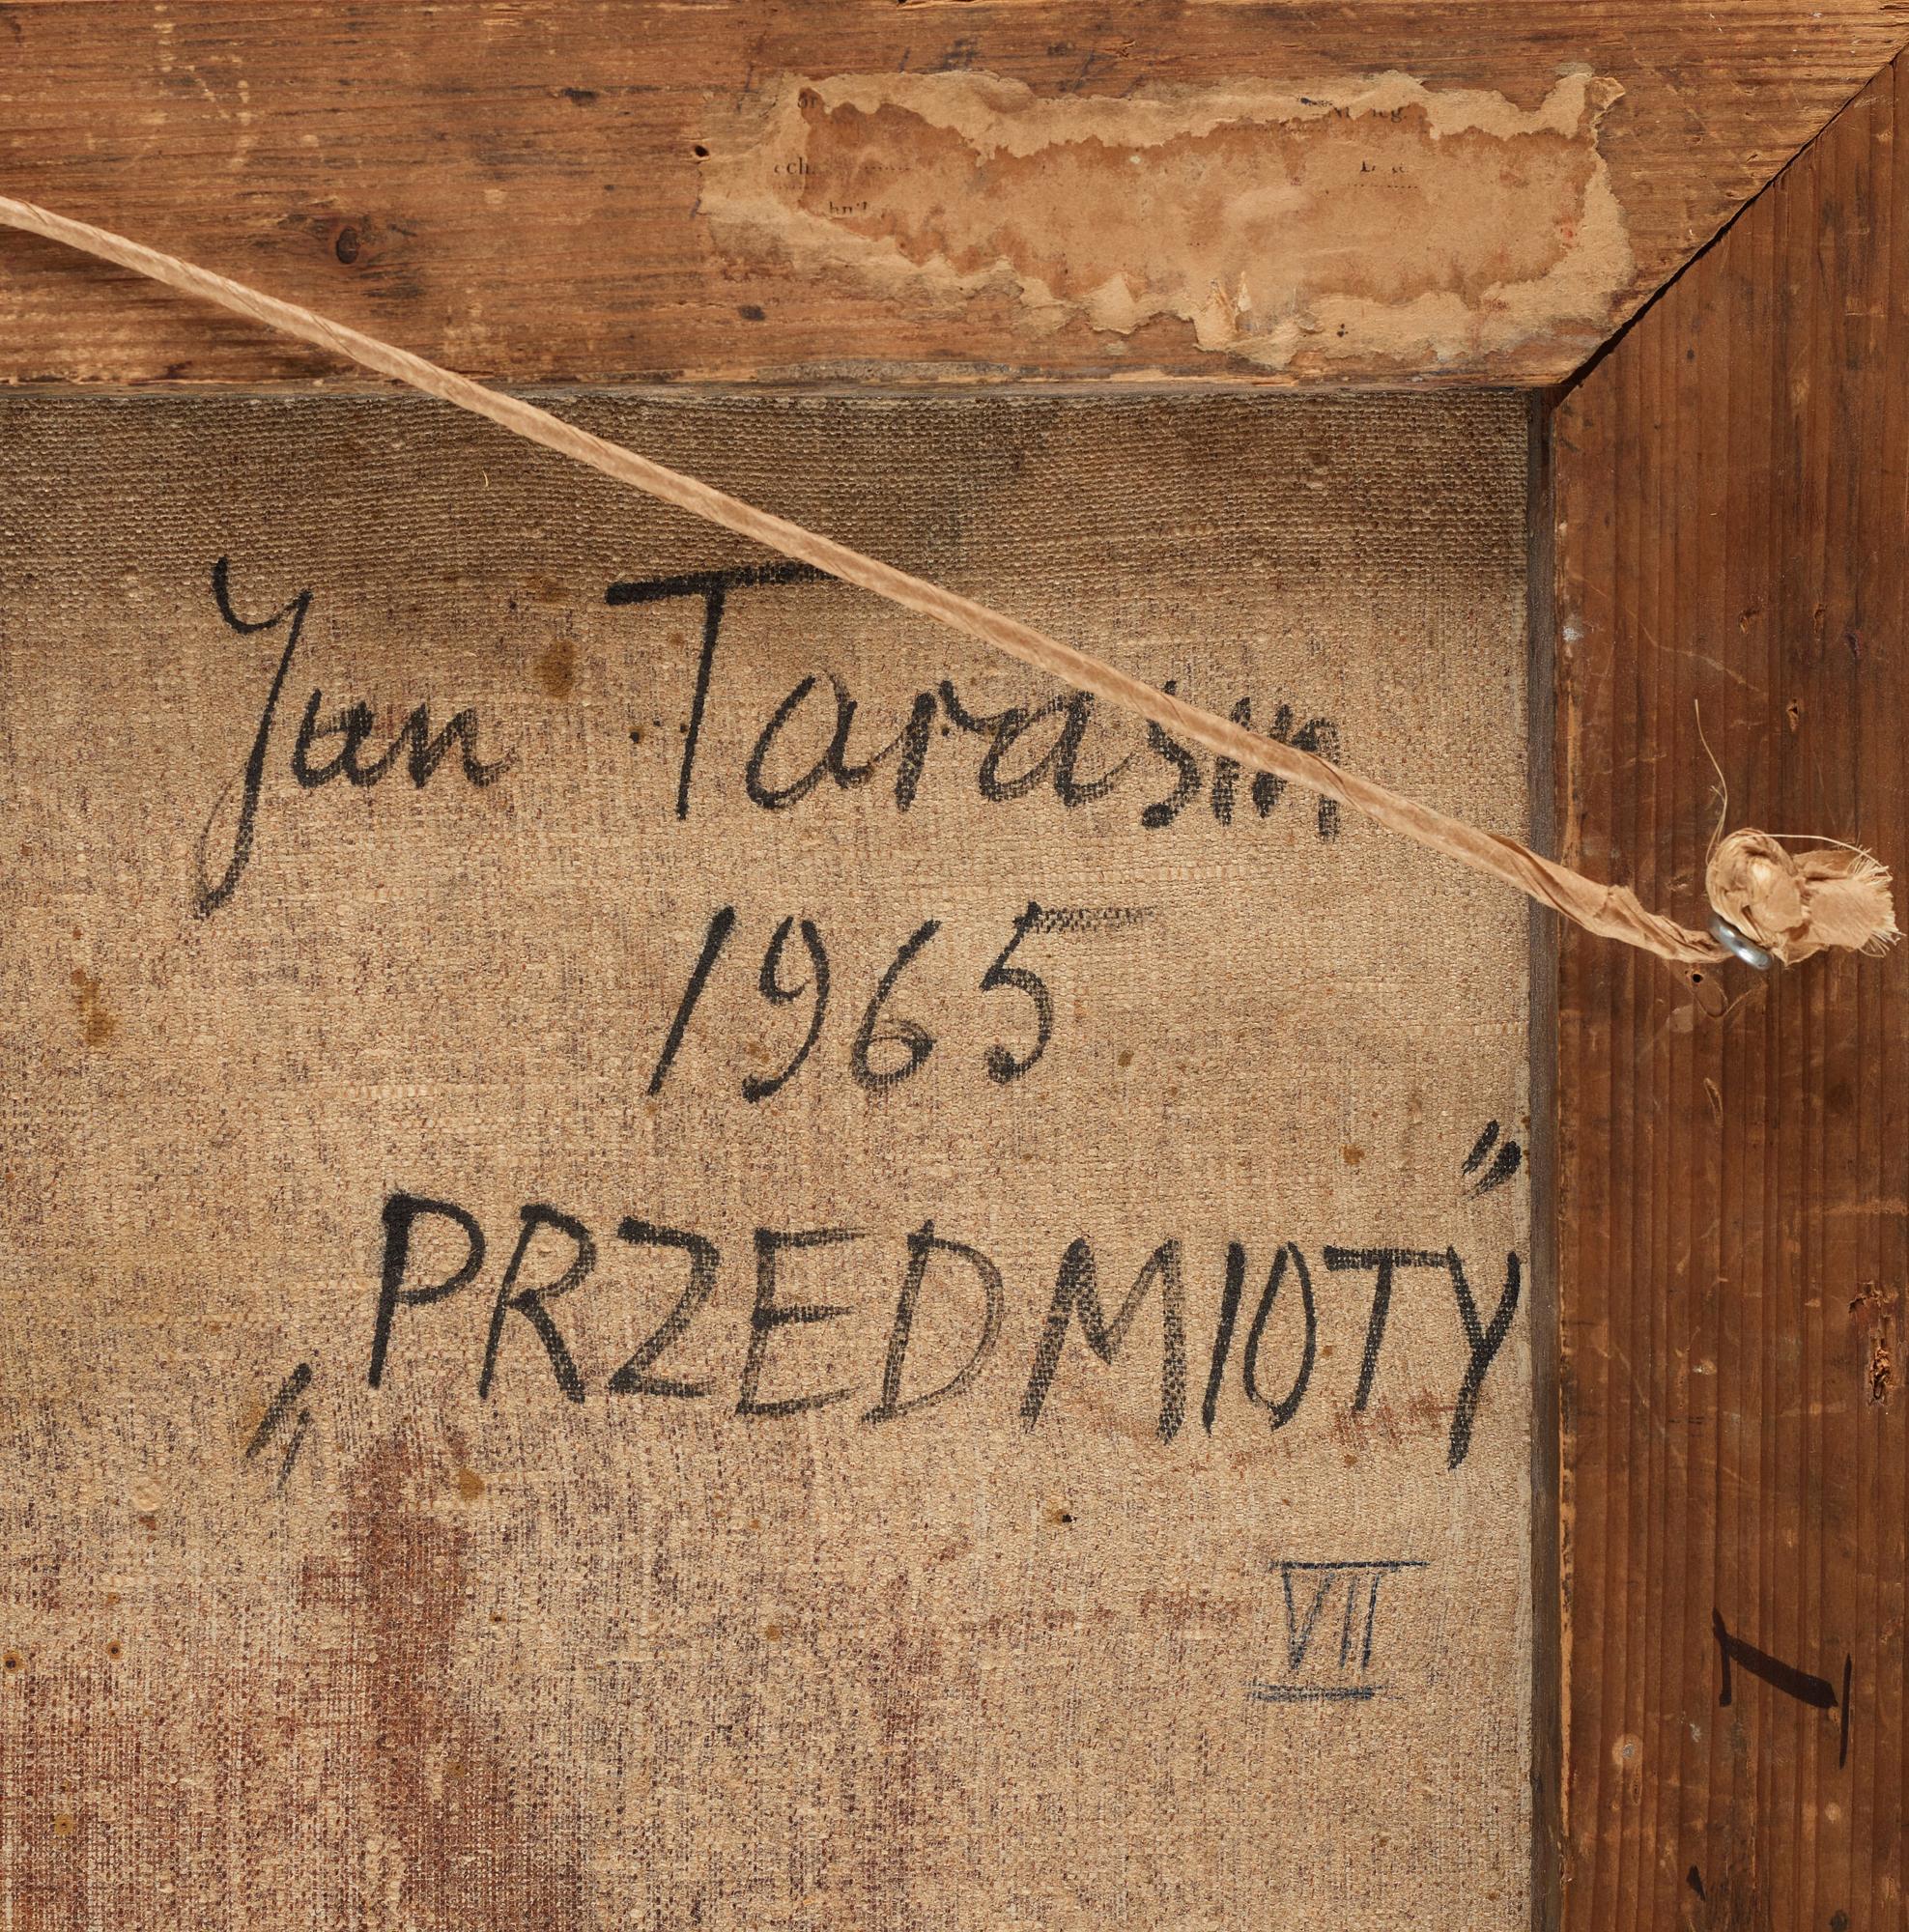 Jan Tarasin
1965
„PRZEDMIOTY"
VII